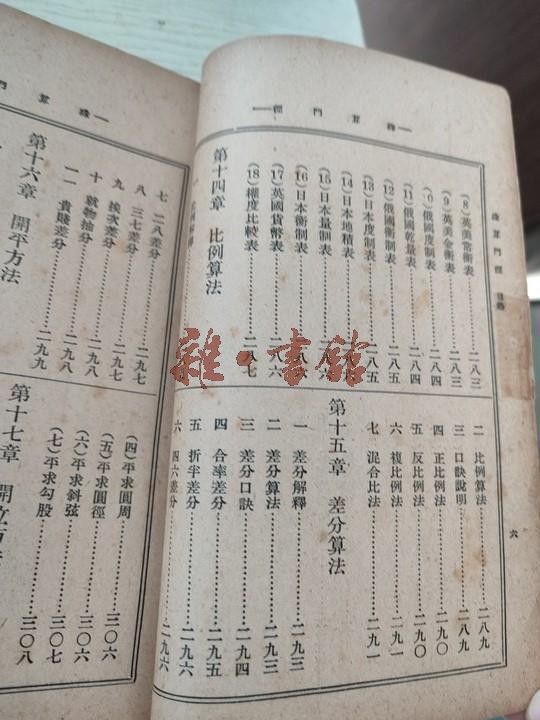 珠算門徑
珠算門徑 目錄
六
(8)英美常衡表……二八三
(9)英美金衡表……二八三
(10)俄國度制表……二八四
(11)俄國乾量表……二八四
(12)俄國衡制表……二八五
(13)日本度制表……二八五
(14)日本地積表……
(15)日本量制表……
(16)日本衡制表……
(17)英國貨幣表……二八六
(18)權度比較表……二八七
第十四章 比例算法
二 比例算法……二八九
三 口訣說明……二八九
四 正比例法……二九〇
五 反比例法……二九〇
六 複比例法……二九一
七 混合比法……二九一
第十五章 差分算法
一 差分解釋……二九三
二 差分算法……二九三
三 差分口訣……二九四
四 合率差分……二九五
五 折半差分……二九六
六 四六差分……二九六
珠算
七 二八差分……二九七
八 三七差分……
九 挨次差分……二九七
十 就物抽分……二九八
一一 貴賤差分……二九八
第十六章 開平方法……二九九
(四)平求圓周……
(五)平求圓徑……三〇六
(六)平求斜弦……三〇六
(七)平求勾股……三〇七
第十七章 開立方法……三〇八
雜·書館